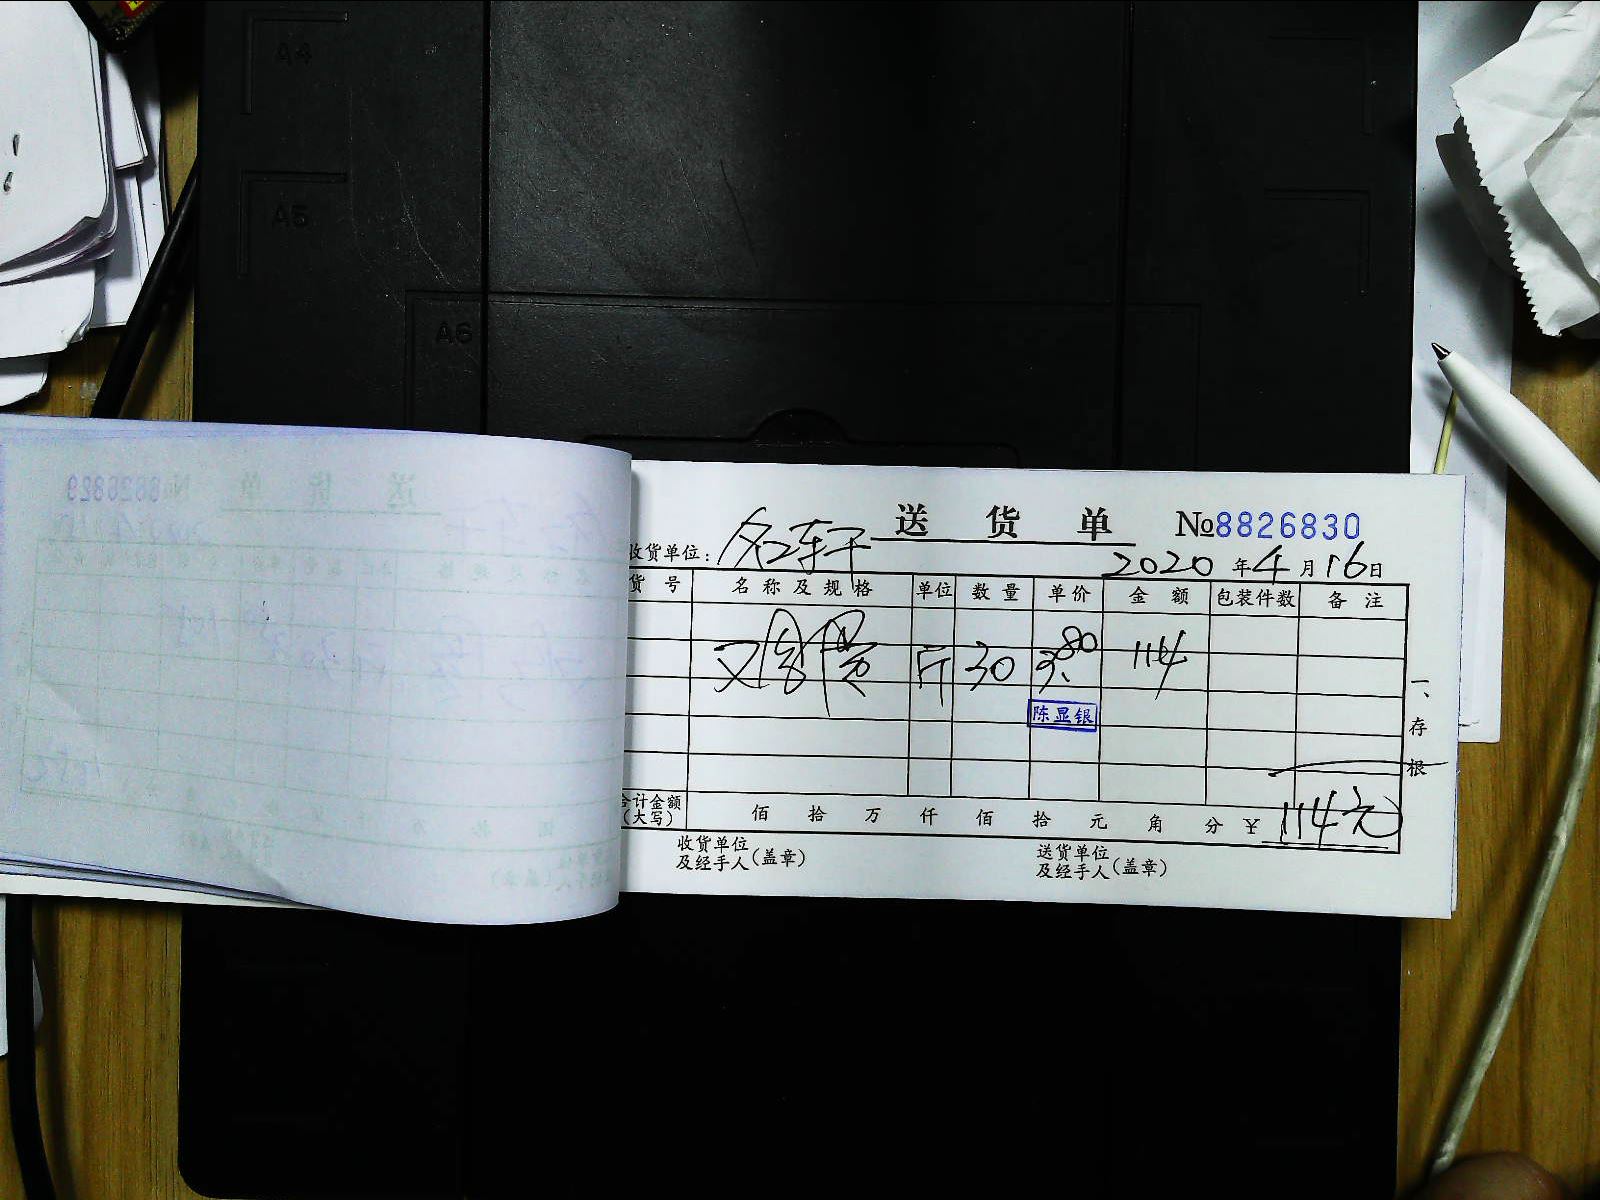 A4
A5
A6
送 货 单 №8826830
收货单位：名轩
2020 年 4 月 16 日
货 号 名 称 及 规 格 单位 数 量 单价 金 额 包装件数 备 注
斤 30 3.80 114
陈显银
一、存根
合计金额（大写） 佰 拾 万 仟 佰 拾 元 角 分 ¥ 114元
收货单位及经手人（盖章） 送货单位及经手人（盖章）